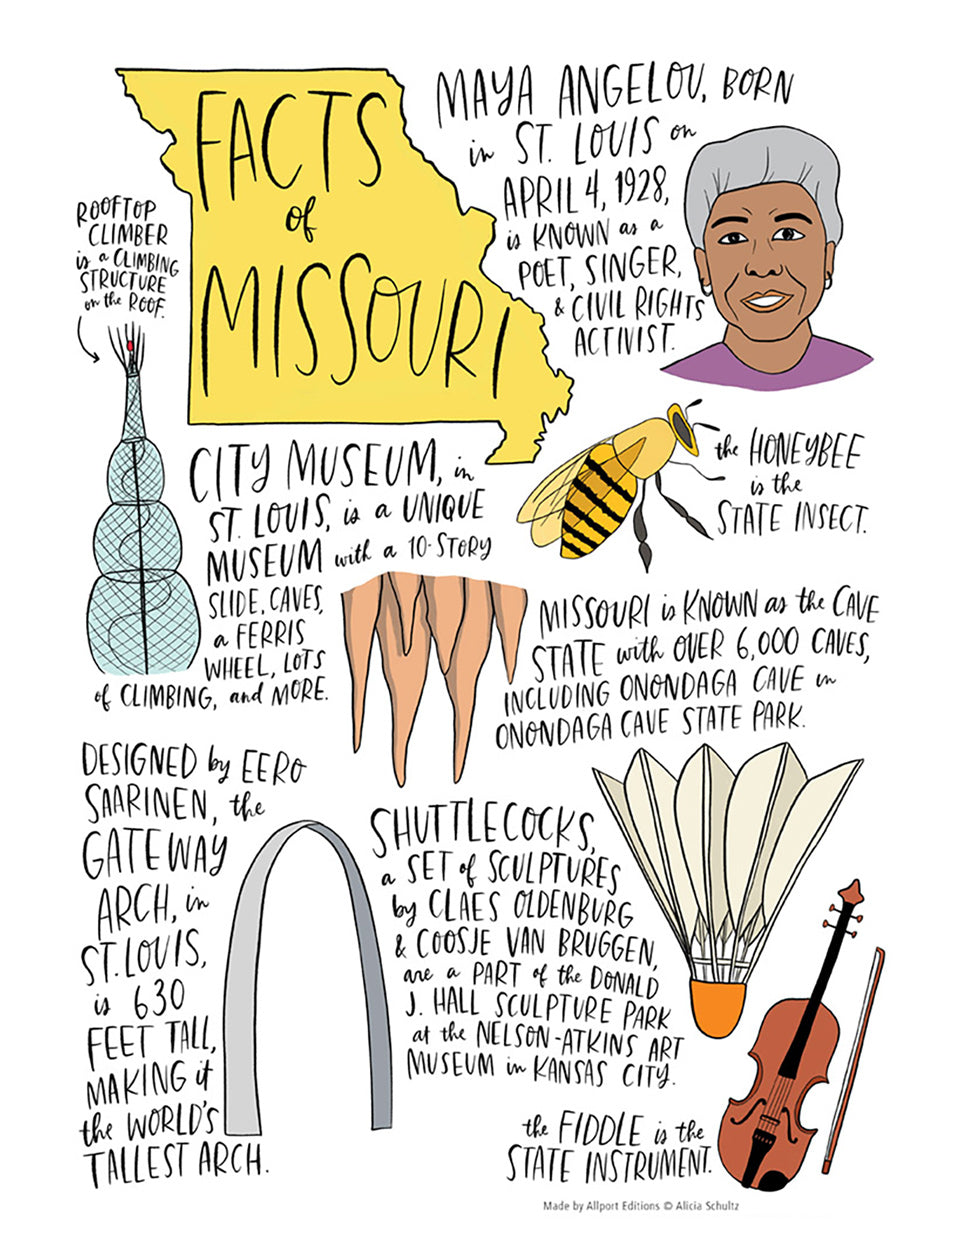 FACTS
of
MISSOURI
MAYA ANGELOU, BORN
in ST. LOUIS on
APRIL 4, 1928,
is KNOWN as a
POET, SINGER,
& CIVIL RIGHTS
ACTIVIST.
ROOFTOP
CLIMBER
is a CLIMBING
STRUCTURE
on the ROOF.
CITY MUSEUM, in
ST. LOUIS, is a UNIQUE
MUSEUM with a 10-STORY
SLIDE, CAVES,
a FERRIS
WHEEL, LOTS
of CLIMBING, and MORE.
the HONEYBEE
is the
STATE INSECT.
MISSOURI is KNOWN as the CAVE
STATE with OVER 6,000 CAVES,
INCLUDING ONONDAGA CAVE in
ONONDAGA CAVE STATE PARK.
DESIGNED by EERO
SAARINEN, the
GATEWAY
ARCH, in
ST. LOUIS,
is 630
FEET TALL,
MAKING it
the WORLD'S
TALLEST ARCH.
SHUTTLECOCKS,
a SET of SCULPTURES
by CLAES OLDENBURG
& COOSJE VAN BRUGGEN,
are a PART of the DONALD
J. HALL SCULPTURE PARK
at the NELSON-ATKINS ART
MUSEUM in KANSAS CITY.
the FIDDLE is the
STATE INSTRUMENT.
Made by Allport Editions © Alicia Schultz